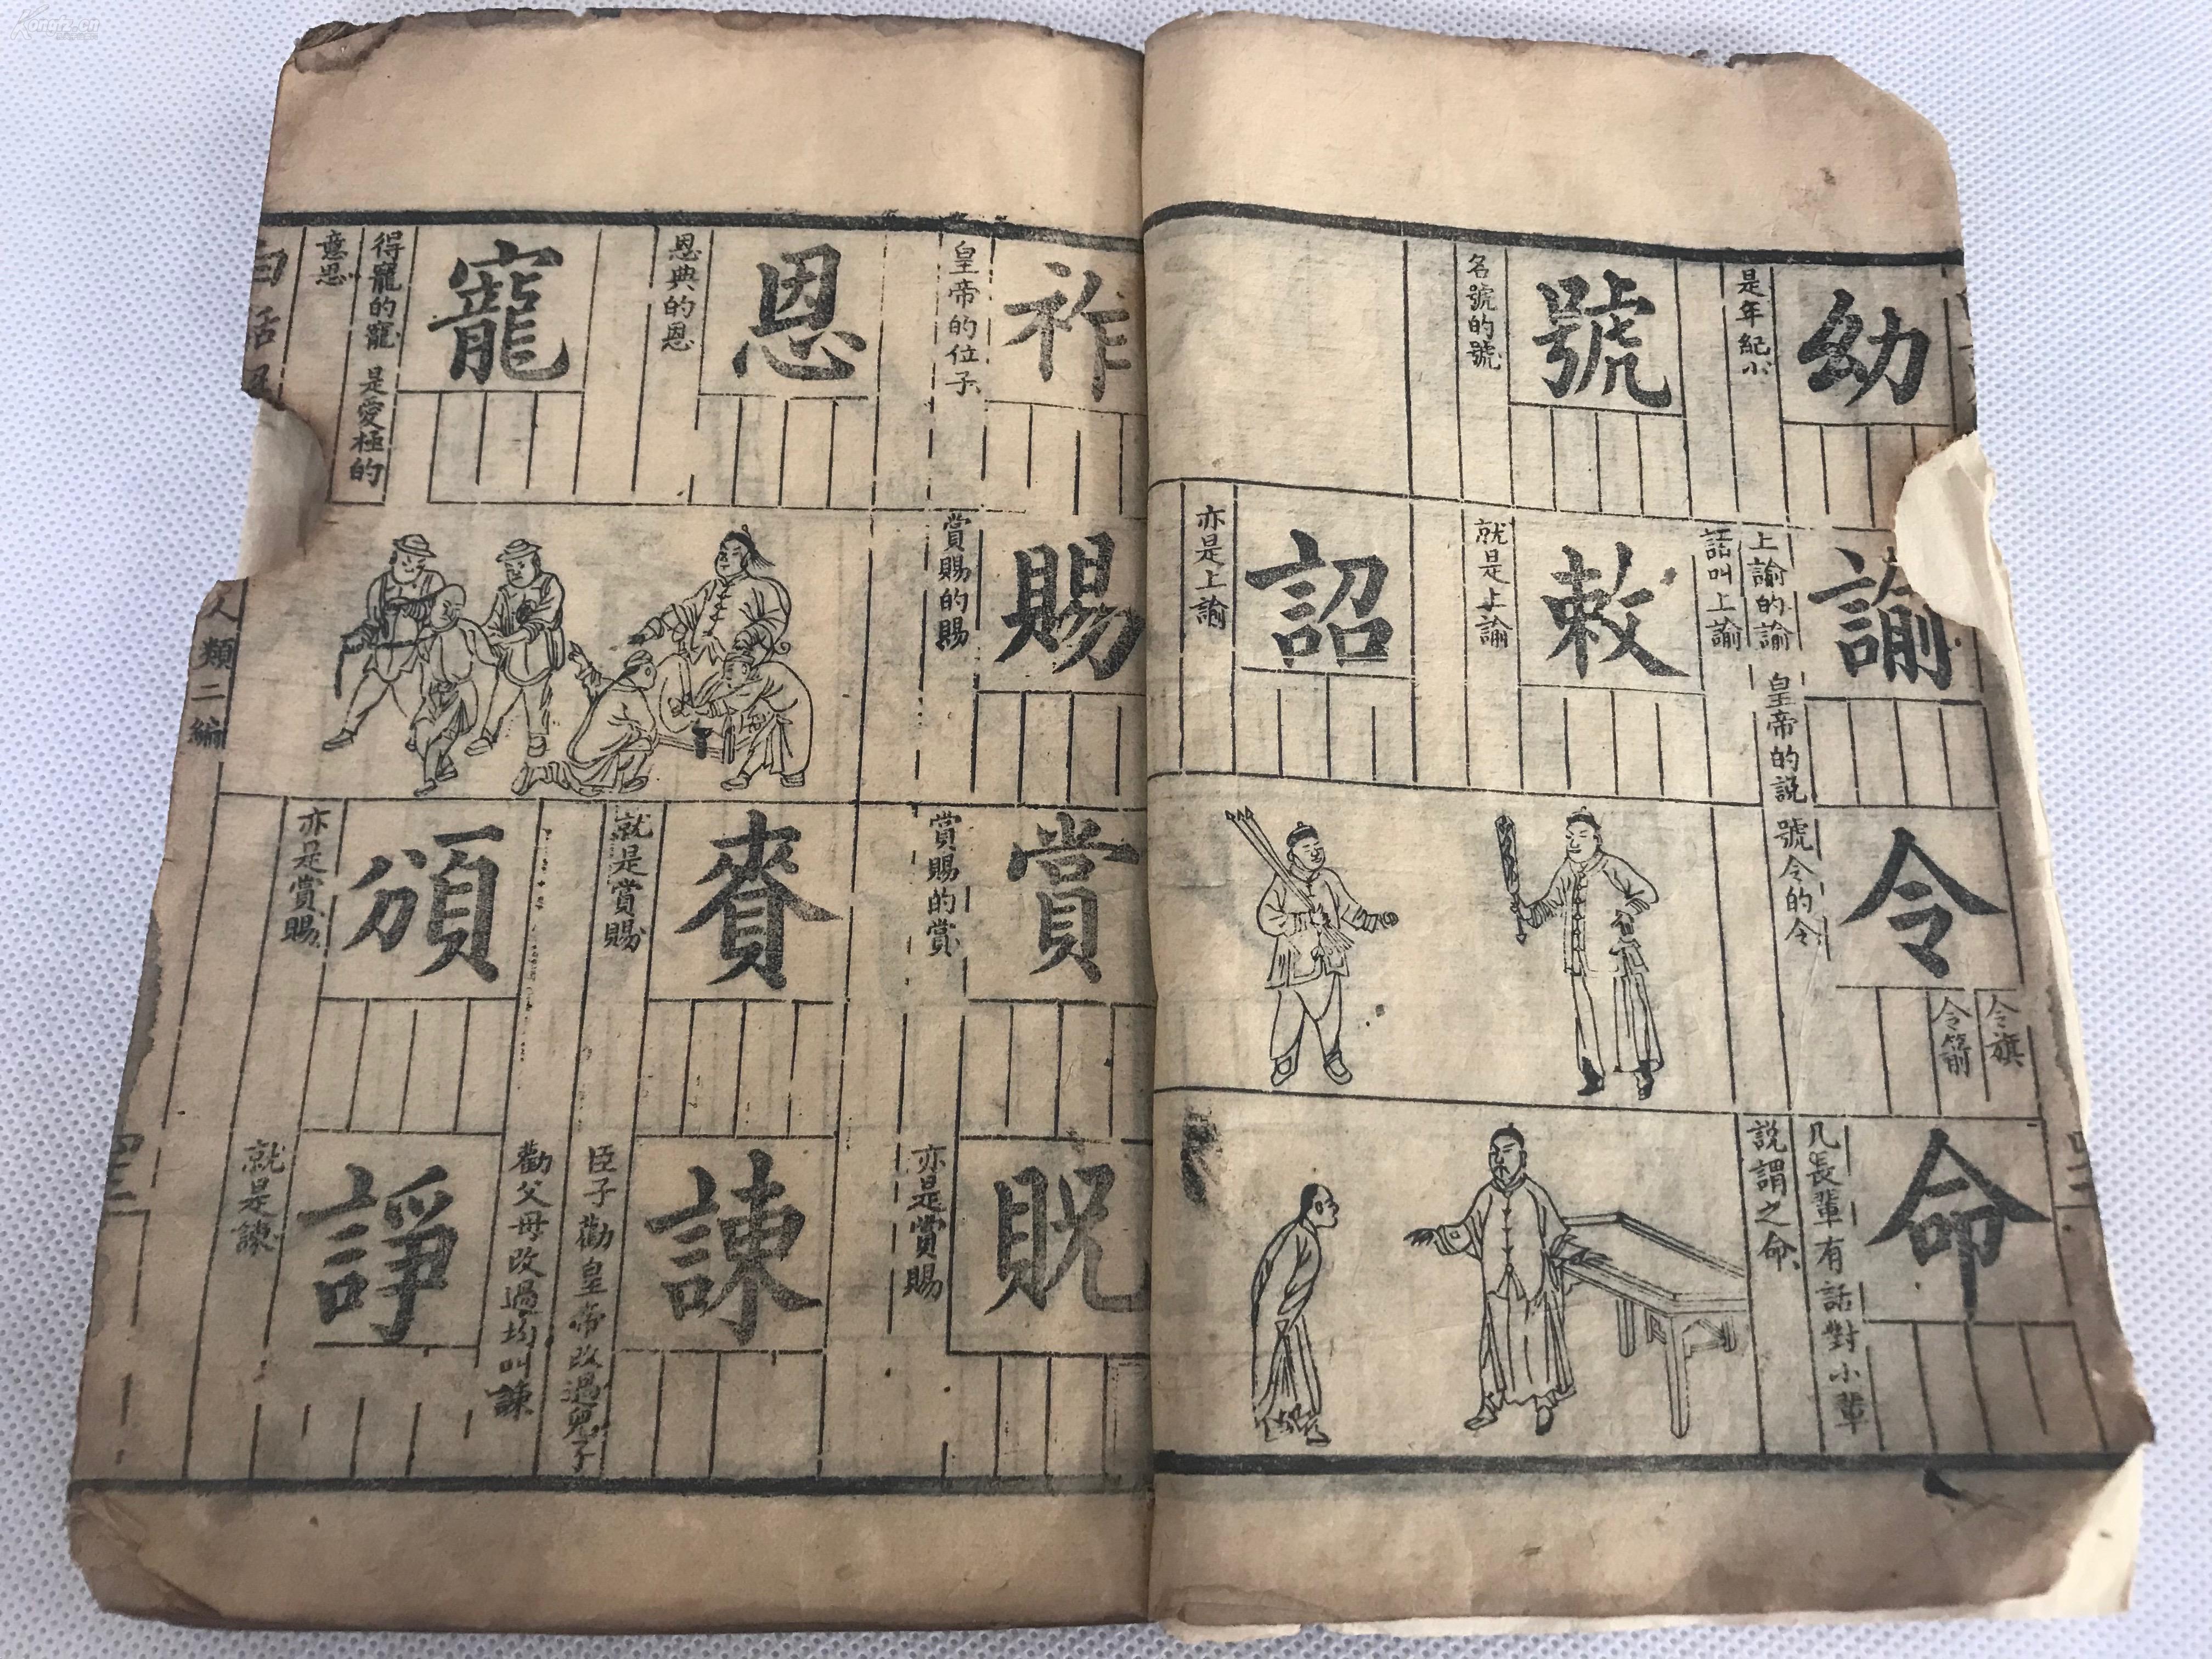 幼
是年紀小
號
名號的號
諭
上諭的諭 皇帝的說
話叫上諭
敕
就是上諭
詔
亦是上諭
令
令旗
令箭
號令的令
命
凡長輩有話對小輩
說謂之命
祚
皇帝的位子
恩
恩典的恩
寵
得寵的寵 是愛極的
意思
賜
賞賜的賜
賞
賞賜的賞
賚
就是賞賜
頒
亦是賞賜
貺
亦是賞賜
諫
臣子勸皇帝改過兒子
勸父母改過均叫諫
諍
就是諫
白話
人類二編
四二
Kongfz.cn